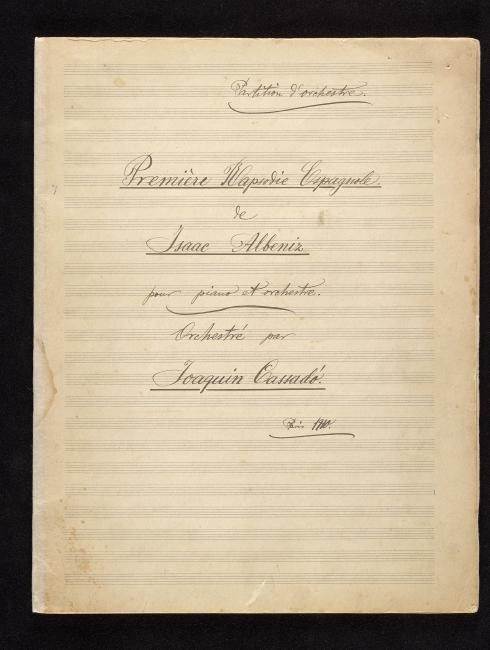 Partition d'orchestre.
Première Rapsodie Espagnole.
de
Isaac Albeniz
pour piano et orchestre.
Orchestré par
Joaquin Cassadó.
Paris 1910.